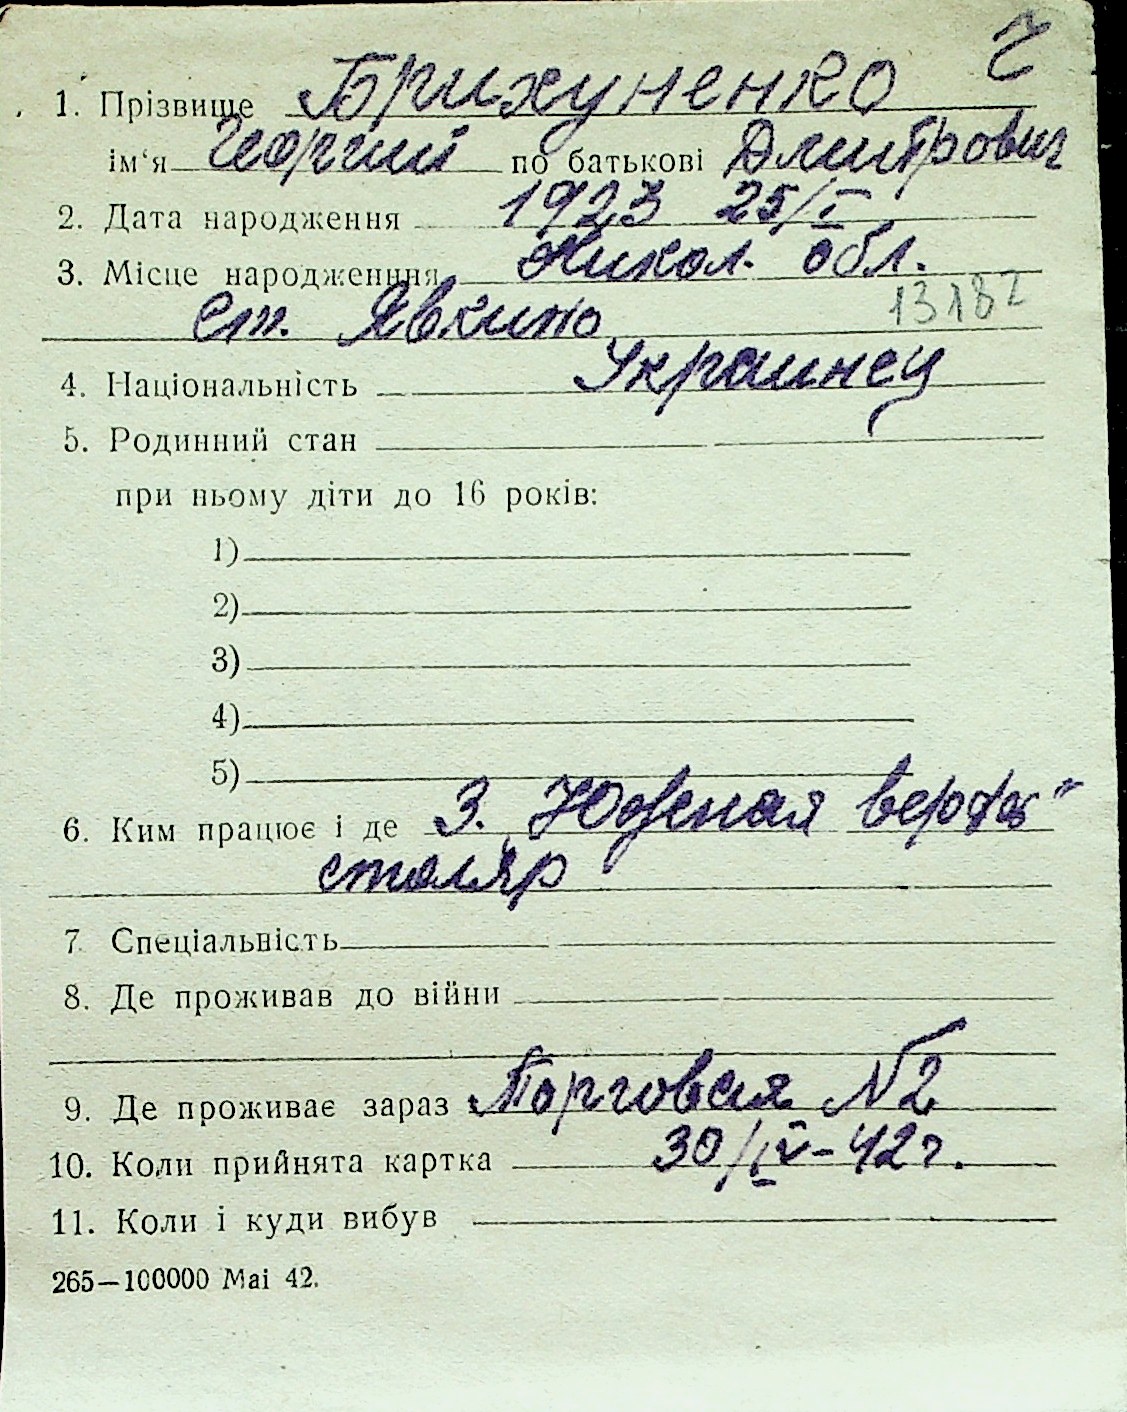 Ч
1. Прізвище Брихуненко
ім‘я Георгий по батькові Дмитрович
2. Дата народження 1923 25/I
3. Місце народженння Никол. обл.
ст. Явкино 13182
4. Національність Украинец
5. Родинний стан
при ньому діти до 16 років:
1)
2)
3)
4)
5)
6. Ким працює і де З. Южная верфь"
столяр
7 Спеціальність
8. Де проживав до війни
9. Де проживає зараз Торговая N2
10. Коли прийнята картка 30/IV-42г.
11. Коли і куди вибув
265—100000 Mai 42.